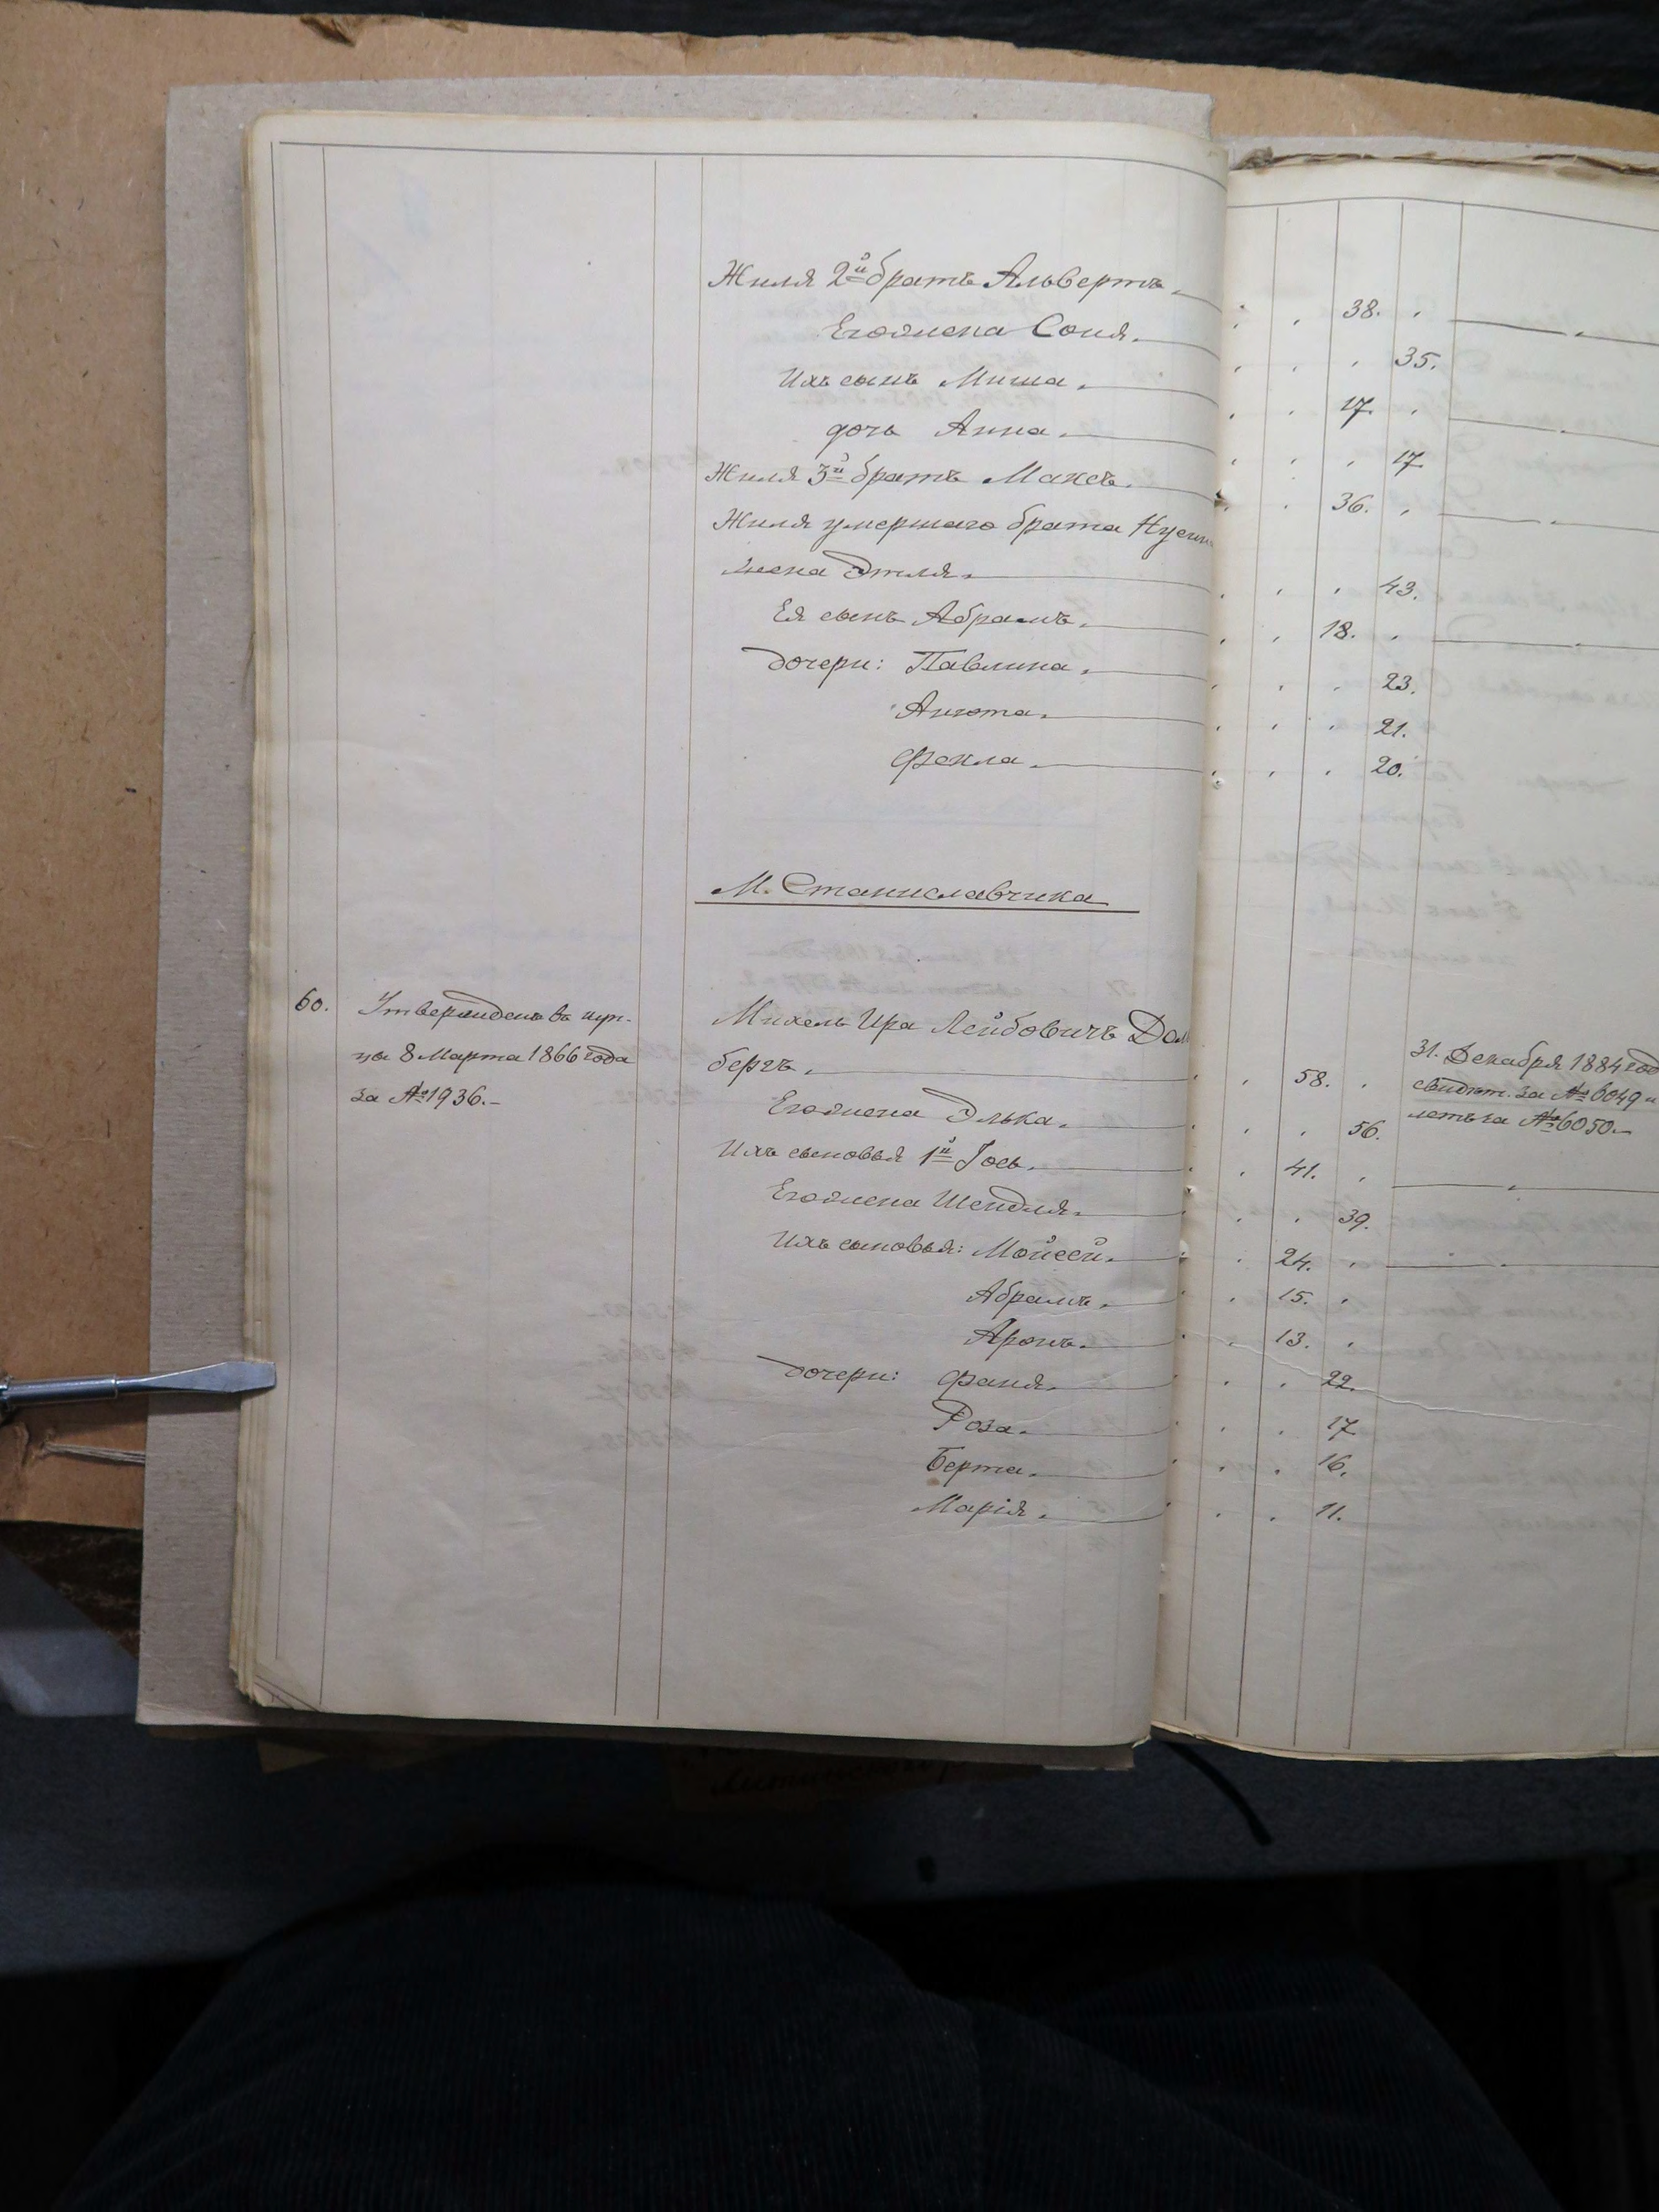 Жиля 2й братъ Альбертъ. 38.
Его жена Соня. 35.
Ихъ сынъ Миша. 17.
дочь Анна. 17.
Жиля 3й братъ Максъ. 36.
Жиля умершаго брата
жена Этля. 43.
Ея сынъ Абрамъ. 18.
дочери: Павлина. 23.
Анюта. 21.
Фекла. 20.
М. Станиславчика
60. Утвержденъ въ куп- Михель Ира Лейбовичъ
цы 8 Марта 1866 года бергъ. 58. 31. Декабря 1884
за №1936.- Его жена Элька. 56. свидѣт. за №6049 и
летъ за №6050.-
Ихъ сыновья 1й Іось. 41.
Его жена Шендля. 39.
Ихъ сыновья: Мойсей. 24.
Абрамъ. 15.
Аронъ. 13.
дочери: Фаня. 22.
Роза. 17
Берта. 16.
Марія. 11.